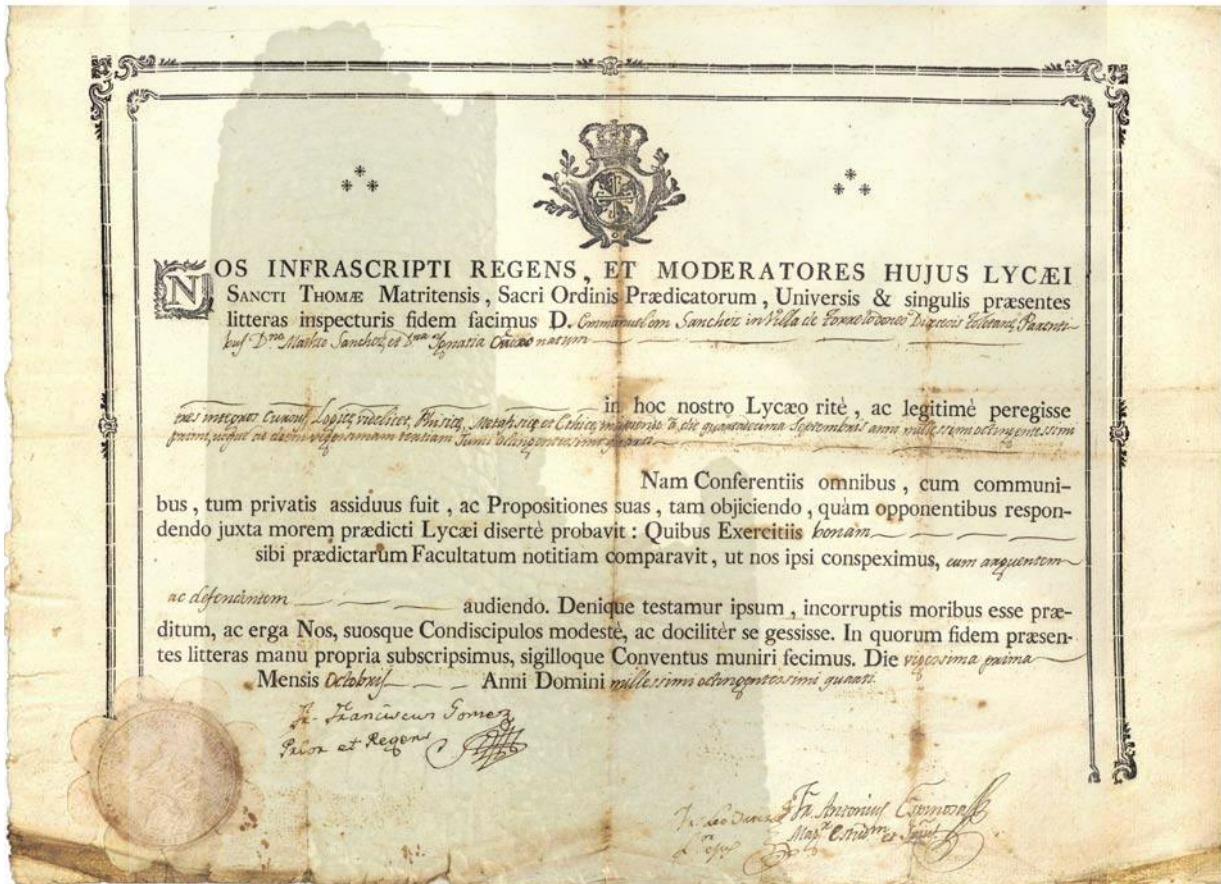 NOS INFRASCRIPTI REGENS, ET MODERATORES HUJUS LYCÆI
SANCTI THOMÆ Matritensis, Sacri Ordinis Prædicatorum, Universis & singulis præsentes
litteras inspecturis fidem facimus D. Emmanuelem Sanchez in Villa de Torrelodones Diœcesis Toletanæ, Parenti-
bus Dno Sanchez, et Dna Ignatia natum
in hoc nostro Lycæo ritè, ac legitimè peregisse
tres integros Cursus, Logicæ videlicet, Phisicæ, Metaphsicæ et Ethicæ, a die quartadecima Septembris anni millessimi octingentessimi
primi, usque ad diem vigesimam tertiam Junii octingentesimi quarti
Nam Conferentiis omnibus, cum communi-
bus, tum privatis assiduus fuit, ac Propositiones suas, tam objiciendo, quàm opponentibus respon-
dendo juxta morem prædicti Lycæi disertè probavit: Quibus Exercitiis bonam
sibi prædictarum Facultatum notitiam comparavit, ut nos ipsi conspeximus, eum arguentem
ac defendentem audiendo. Denique testamur ipsum, incorruptis moribus esse præ-
ditum, ac erga Nos, suosque Condiscipulos modestè, ac docilitèr se gessisse. In quorum fidem præsen-
tes litteras manu propria subscripsimus, sigilloque Conventus muniri fecimus. Die vigesima prima
Mensis Octobris Anni Domini millessimi octingentesimi quarti.
Fr. Franciscus Gomez
Prior et Regens
Fr. Antonius Espinosa
Magr Estudm et